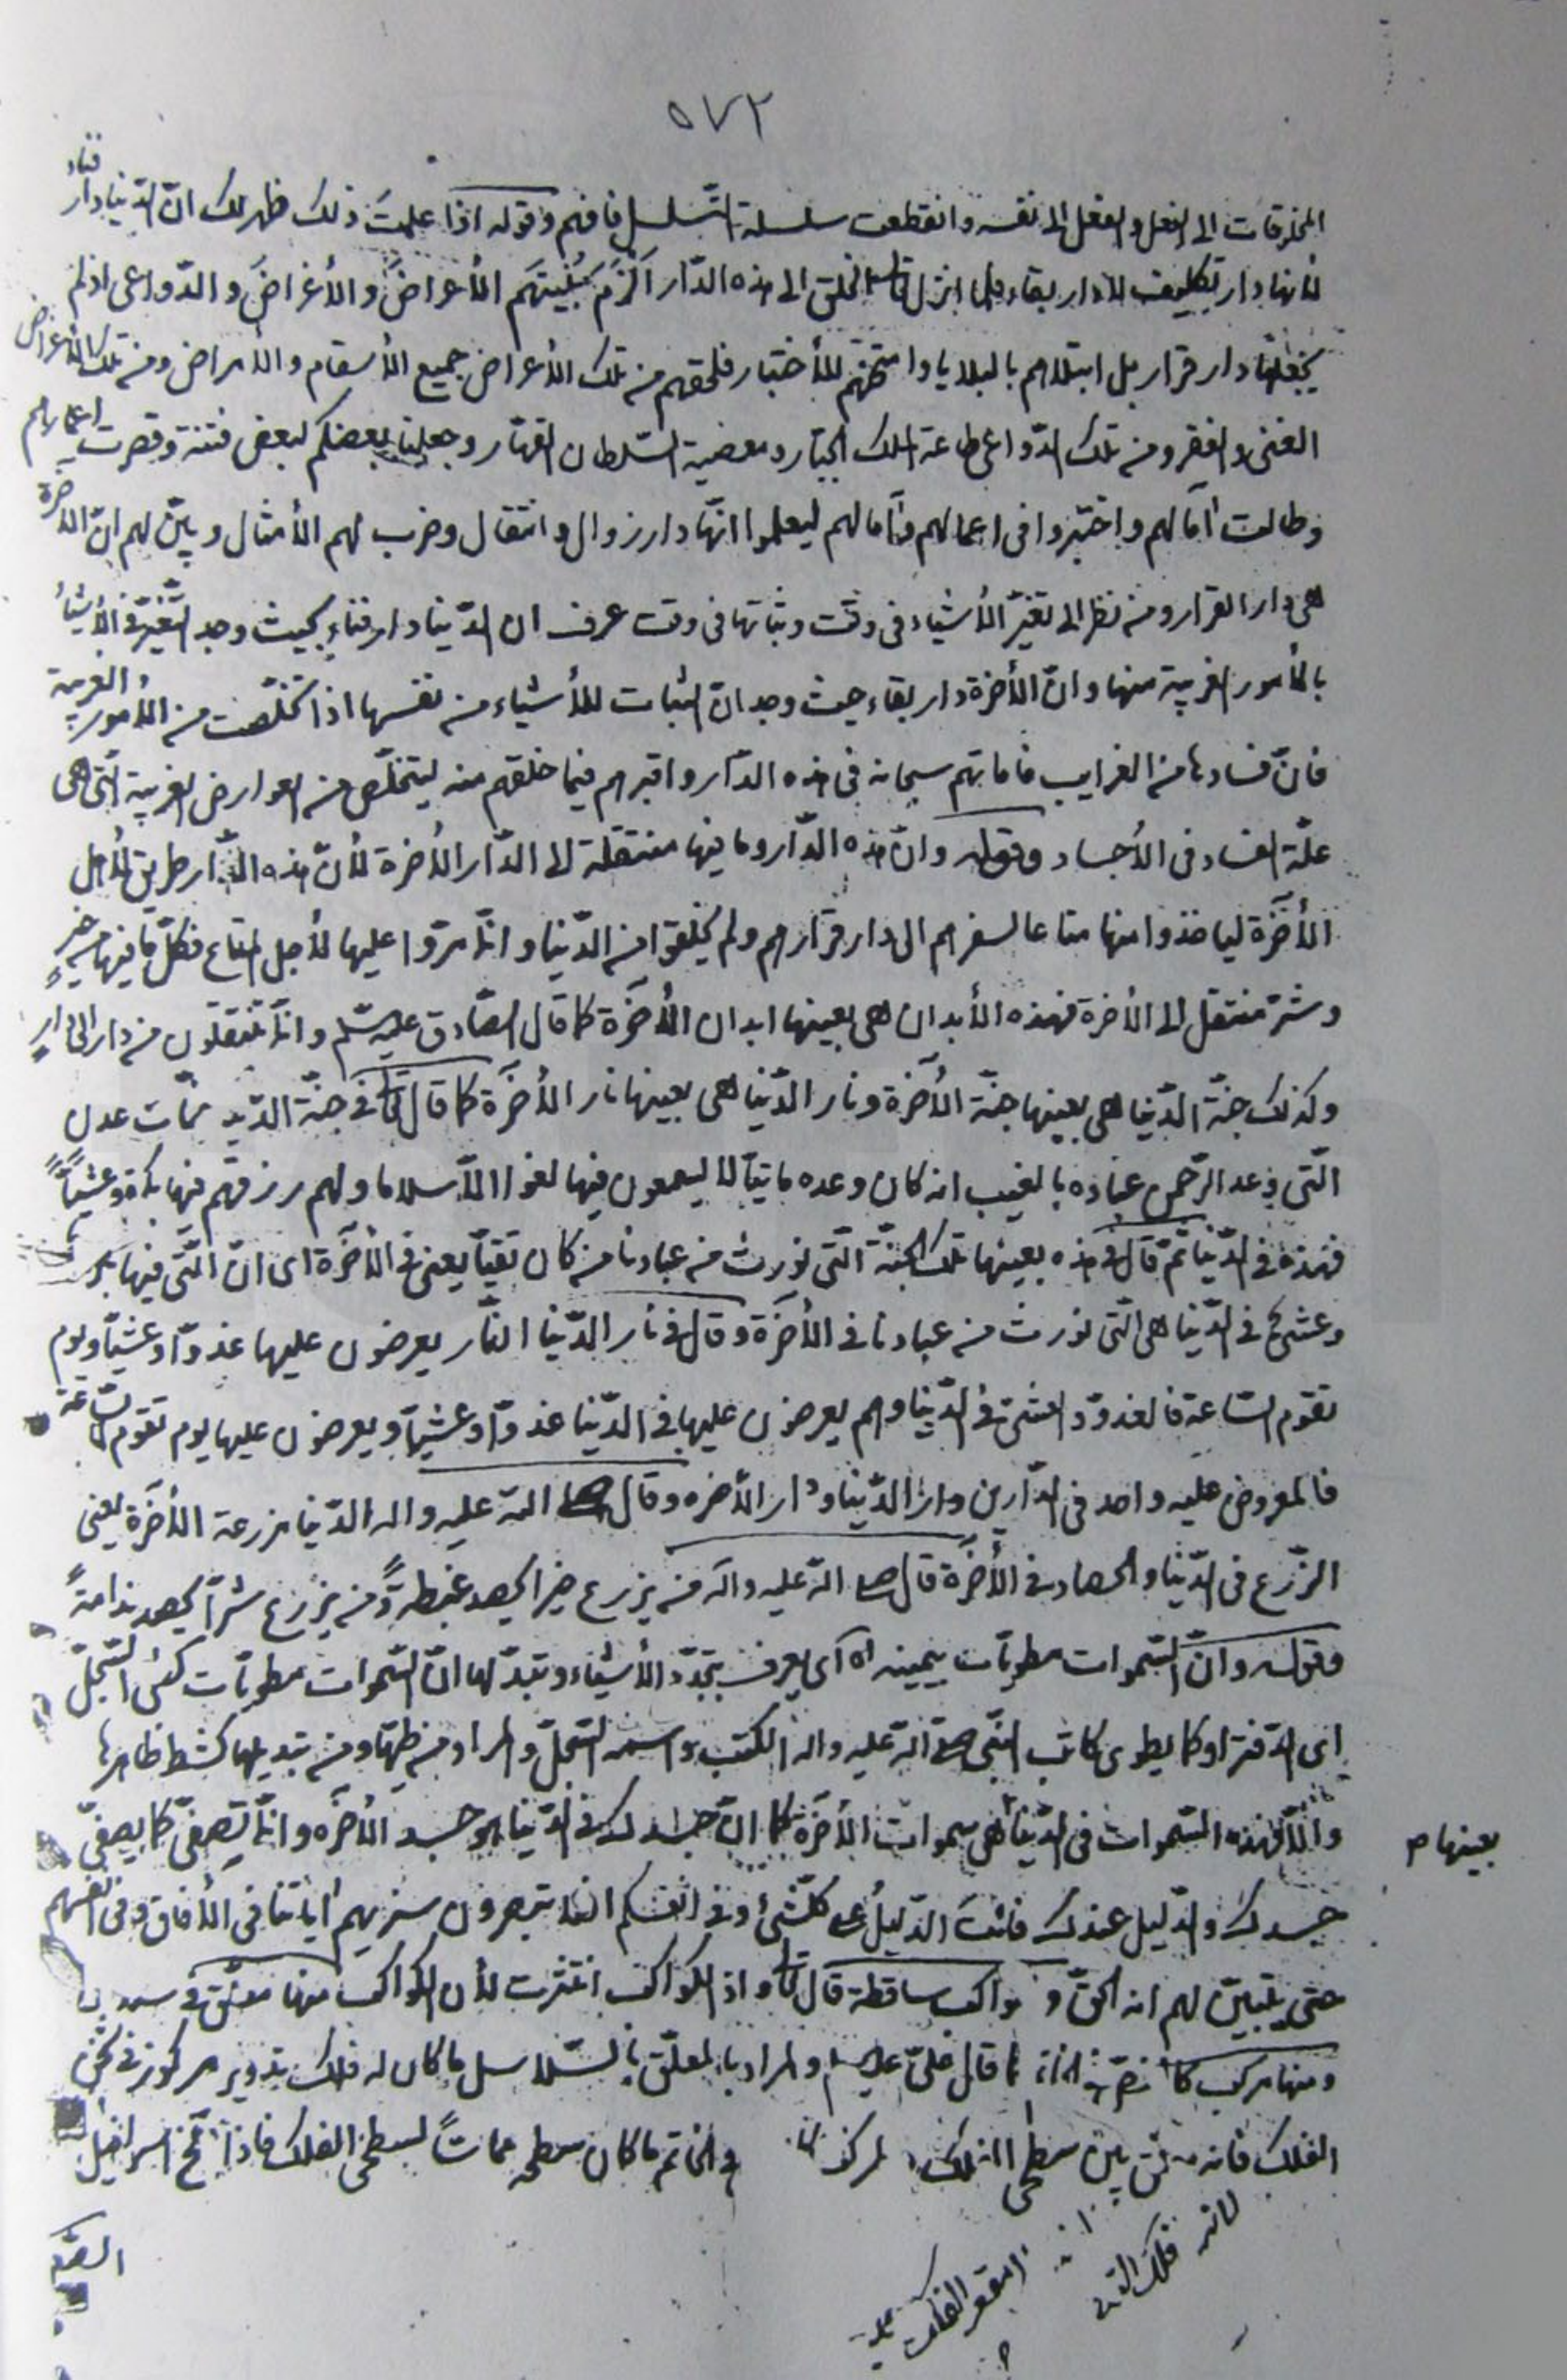 ٥٧٢
المخلوقات الى الفعل والفعل الى نفسه وانقطعت سلسلة التسلسل فافهم وقوله اذا علمتَ ذلك ظهر لك انّ الدّنيا دار فناء
لأنها دار تكليف لا دار بقاء فلما انزل تعالى الخلق الى هذه الدّار اَلْزَمَ بُنْيَتَهم الأعراضَ والأغراضَ والدّواعى اذ لم
يجعلها دار قرار بل ابتلاهم بالبلايا وامتحنهم للأختبار فلحقهم من تلك الأعراض جميع الأسقام والأمراض ومن تلك الأغراض
الغنى والفقر ومن تلك الدّواعى طاعة الملك الجبّار ومعصية السّلطان القهّار وجعلنا بعضكم لبعض فتنة وقصرت اعمارهم
وطالت آمالهم واختبروا فى اعمالهم وآمالهم ليعلموا انّها دار زوال وانتقال وضرب لهم الأمثال وبيّن لهم انّ الآخرة
هى دار القرار ومن نظر الى تغيّر الأشياء فى وقت وثباتها فى وقت عرف ان الدّنيا دار فناءٍ بحيث وجد التّغيّر فى الأشياء
بالأمور الغريبة منها وانّ الأخرة دار بقاء حيث وجد انّ الثبات للأشياء من نفسها اذا تخلّصت من الأمور الغريبة
فانّ فسادها من الغرايب فاماتهم سبحانه فى هذه الدّار واقبرهم فيما خلقهم منه ليتخلّص من العوارض الغريبة الّتى هى
علّة الفساد فى الأجساد وقوله وانّ هذه الدّار وما فيها منتقلة الى الدّار الأخرة لأنّ هذه الدّار طريق لأهل
الأخرَة لياخذوا منها متاعا لسفرهم الى دار قرارهم ولم يخلقوا من الدّنيا وانّما مرّوا عليها لأجل المتاع فكلّ ما فيها من خيرٍ
وشرّ منتقل الى الأخرة فهذه الأبدان هى بعينها ابدان الأخرَة كما قال الصّادق عليه السّلم وانّما تنتقلون من دار الى دارٍ
وكذلك جنّة الدّنيا هى بعينها جنّة الأخرَة ونار الدّنيا هى بعينها نار الأخرَة كما قال تعالى فى جنّة الدّنيا جنّات عدن
الّتى وعد الرّحمن عباده بالغيب انه كان وعده ماتيّا لا يسمعون فيها لغوا الّا سلاما ولهم رزقهم فيها بكرة وعشيّاً
فهذه فى الدّنيا ثمّ قال فى هذه بعينها تلك الجنّة الّتى نورث من عبادنا من كان تقيّا يعنى فى الأخرَة اى انّ الّتى فيها بكرة
وعشىّ فى الدّنيا هى الّتى نورث من عبادنا فى الأخرَة وقال فى نار الدّنيا النّار يعرضون عليها غدوّا وعشيّا ويوم
تقوم السّاعة فالغدوّ والعشىّ فى الدّنيا وهم يعرضون عليها فى الدّنيا غدوّا وعشيّا ويعرضون عليها يوم تقوم السّاعة
فالمعروض عليه واحد فى الدّارين دار الدّنيا ودار الأخره وقال صلى الله عليه واله الدّنيا مزرعة الأخرَة يعنى
الزّرع فى الدّنيا والحصاد فى الأخرَة قال صلى الله عليه واله من يزرع خيرا يحصد غبطةً ومن يزرع شرّاً يحصد ندامةً
وقوله وانّ السّموات مطويّات بيمينه اه اى يعرف بتجدّد الأشياء وتبدّلها انّ السّموات مطويّات كطىّ السّجلّ
اى الدّفتر او كما يطوى كاتب النّبى صلى الله عليه واله الكتب واسمه السّجلّ والمراد من طيّها ومن تبديلها كشط ظاهرها
والّا فهذه السّموات فى الدّنيا هى سموات الأخرَة كما انّ جسدك فى الدّنيا هو جسد الأخرَه وانّما تصفّى كما يصفّى
بعينها م
جسدك والدّليل عندك فانتَ الدّليلُ على كلّ شئ وفى انفسكم افلا تبصرون سنريهم اياتنا فى الأفاق وفى انفسهم
حتى يتبيّن لهم انه الحقّ و واكب ساقطة قال تعالى واذا الكواكب انتثرت لأن الكواكب منها معلّق
ومنها مركب كما قال علىّ عليه السلم والمراد بالمعلّق بالسّلاسل ما كان له فلك تدوير مركوز فى ثخن
الفلك فانه بين سطحى الفلك والخاتم ما كان سطحه مماسّاً لسطحى الفلك فاذا نفخ اسرافيل
لانه فلك
لمقعر الفلك
الصّور